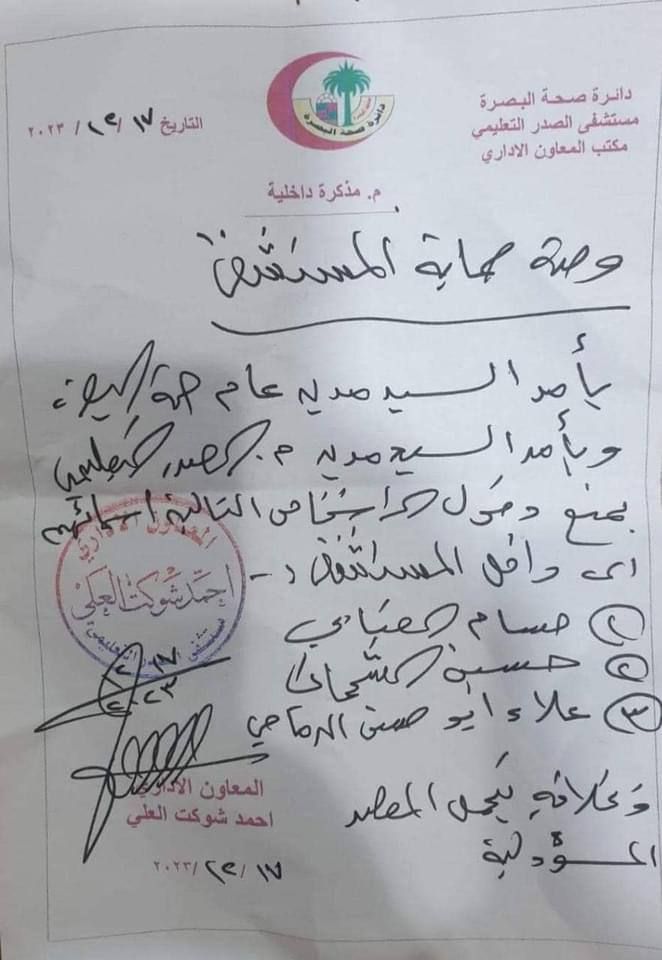 دائرة صحة البصرة
مستشفى الصدر التعليمي
مكتب المعاون الاداري
التاريخ ١٧/ /٢٠٢٣
دائرة صحة البصرة
م. مذكرة داخلية
وحدة حماية المستشفى
يأمر السيد مدير عام صحة البصرة
وبأمر السيد مدير م. الصدر التعليمي
بمنع دخول الاشخاص التالية اسمائهم
الى داخل المستشفى :-
١ حسام العبادي
٢ حسين
٣ علاء ابو حسن الرماحي
وخلافه يتحمل المقصر
المسؤولية
المعاون الاداري
احمد شوكت العلي
١٧
٢٠٢٣
المعاون الاداري
احمد شوكت العلي
١٧/ /٢٠٢٣